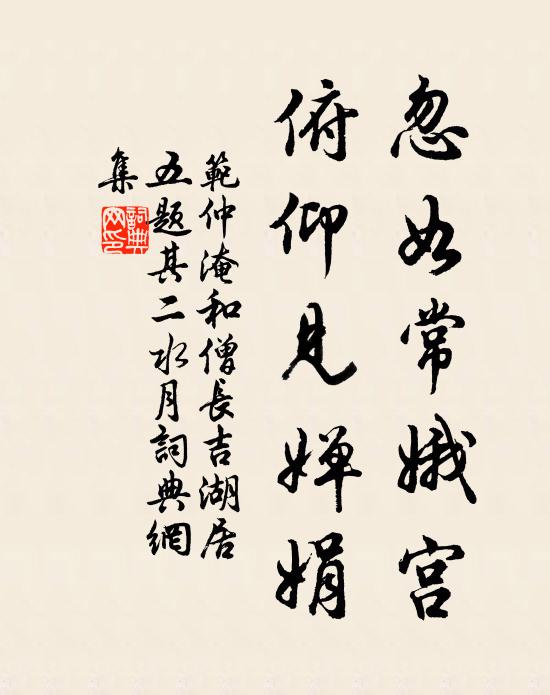 忽如常娥宫
俯仰見嬋娟
範仲淹和僧長吉湖居
五題其二水月詞典網
集
詞典
网